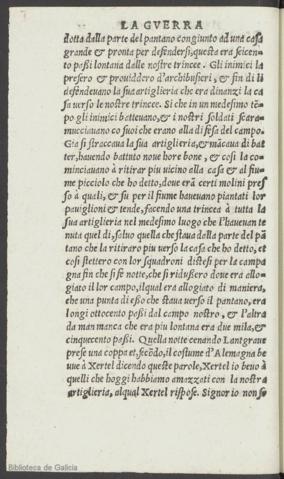 LA GVERRA
dotta dalla parte del pantano congiunto ad una casa
grande & pronta per defendersi, questa era seicen-
to paßi lontana dalle nostre trincee. Gli inimici la
presero & providdero d'archibusieri, & fin di lì
defendeuano la sua artiglieria che era dinanzi la ca
sa uerso le nostre trincee. Si che in un medesimo tē-
po gli inimici batteuano, & i nostri soldati scara-
mucciauano co suoi che erano alla difesa del campo.
Gia si straccaua la sua artiglieria, & mācaua di bat
ter, hauendo battuto noue hore bone, & così la co-
minciauano à ritirar piu uicino alla casa & al fiu-
me picciolo che ho detto, doue erā certi molini pres
so à quali, & su per il fiume haueuano piantati lor
pauiglioni & tende, facendo una trincea à tutta la
sua artiglieria nel medesimo luogo che l'haueuan te
nuta quel dì, saluo quella che staua dalla parte del pā
tano che la ritiraro piu uerso la casa che ho detto, et
così stettero con lor squadroni distesi per la campa
gna fin che si fè notte, che si ridußero doue era allo-
giato il lor campo, il qual era allogiato di maniera,
che una punta di eßo che staua uerso il pantano, era
longi ottocento paßi dal campo nostro, & l'altra
da man manca che era piu lontana era due mila, &
cinquecento paßi. Quella notte cenando Lantgraue
prese una coppa et, secōdo, il costume d'Alemagna be
uue à Xertel dicendo queste parole, Xertel io beuo à
quelli che hoggi habbiamo amazzati con la nostra
artiglieria, al qual Xertel rispose. Signor io non so
Biblioteca de Galicia